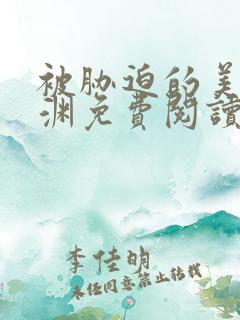 被胁迫的美
渊免費閱讀
李佳明
未经同意禁止转载